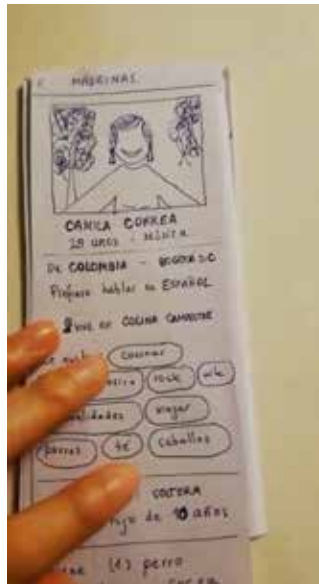 MADRINAS
CAMILA CORREA
28 años - música
De COLOMBIA - BOGOTÁ D.C
Prefiere hablar en ESPAÑOL
VIVE EN COLINA CAMPESTRE
cocinar
rock arte
viajar
perros té caballos
SOLTERA
hijo de 10 años
(1) perro